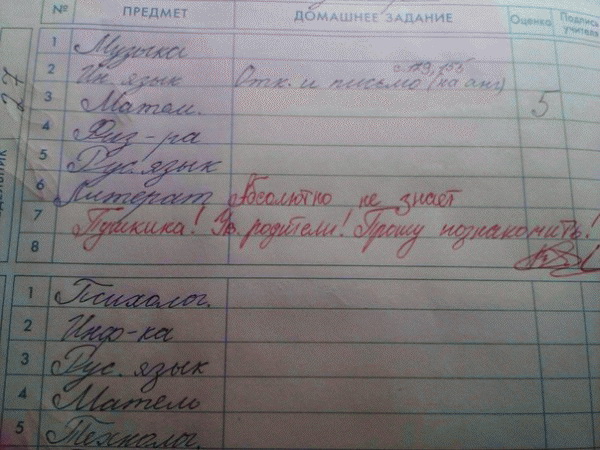 № ПРЕДМЕТ ДОМАШНЕЕ ЗАДАНИЕ Оценка Подпись учителя
27
1 Музыка
2 Ин. язык Отк. и письмо (на анг)
с 119, 155
3 Матем. 5
4 Физ-ра
5 Рус. язык
6 Литерат Абсолютно не знает
7 Пушкина! Ув. родители! Прошу познакомить!
8
1 Психолог.
2 Инф-ка
3 Рус. язык
4 Матем
5 Технолог.